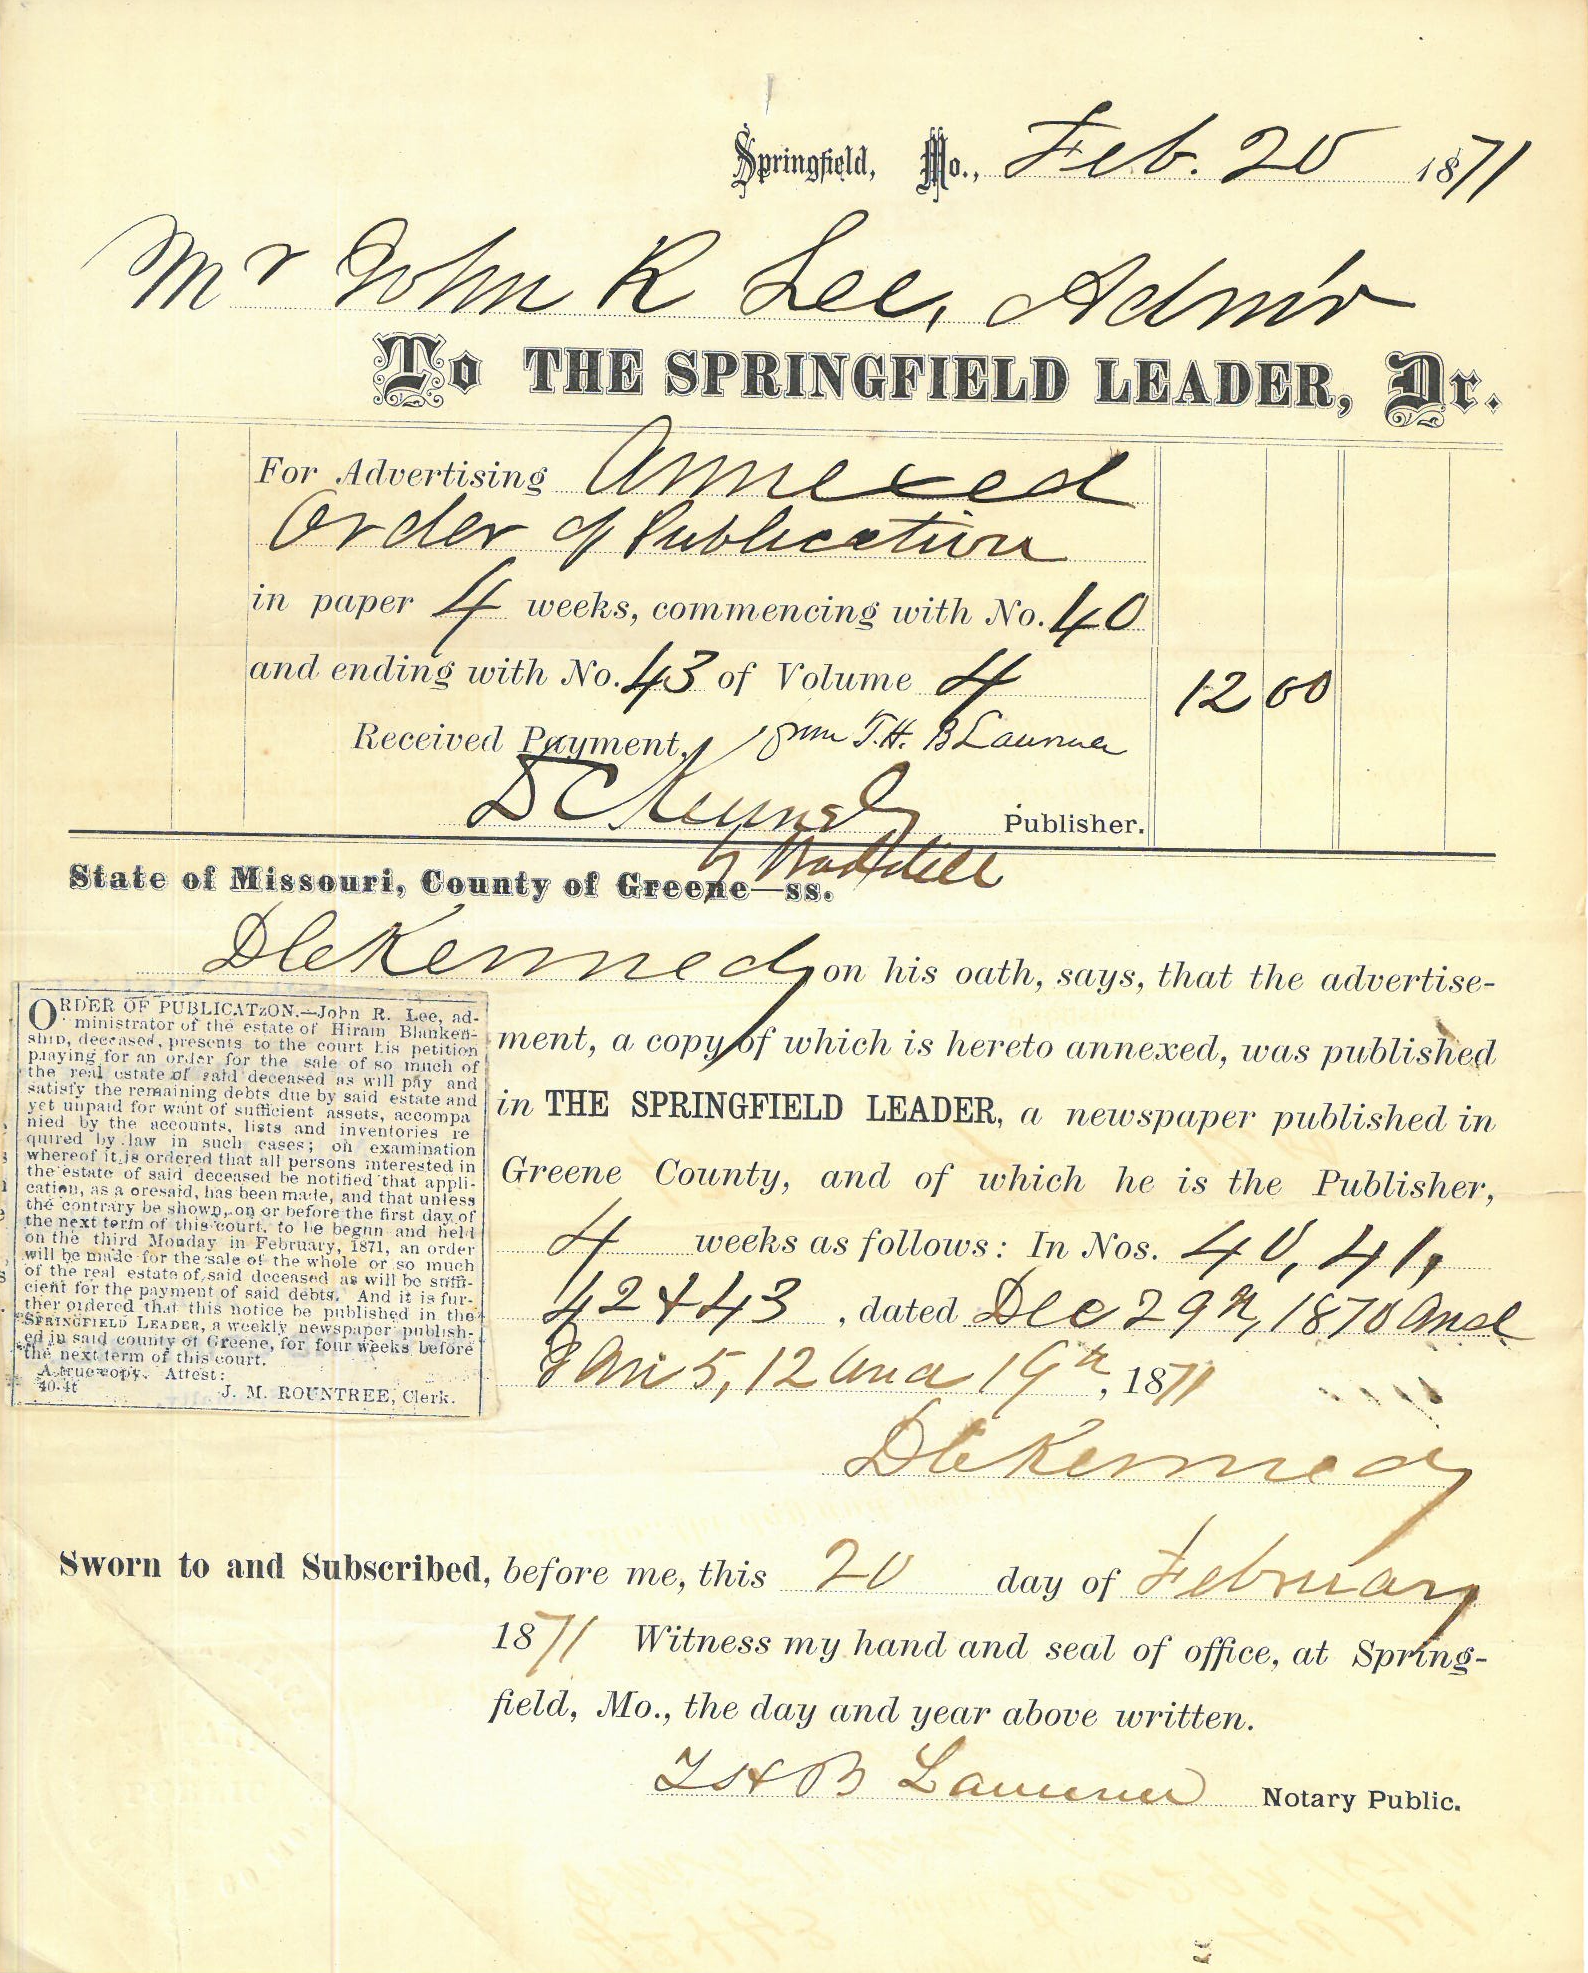 Springfield, Mo., Feb. 20 1871
Mr John R Lee, Admr
To THE SPRINGFIELD LEADER, Dr.
For Advertising Annexed
Order of Publication
in paper 4 weeks, commencing with No. 40
and ending with No. 43 of Volume 4 12 00
Received Payment, from T.H.B
D C Kennedy Publisher.
by Waddill
State of Missouri, County of Greene—ss.
D C Kennedy on his oath, says, that the advertise-
ment, a copy of which is hereto annexed, was published
in THE SPRINGFIELD LEADER, a newspaper published in
Greene County, and of which he is the Publisher,
4 weeks as follows: In Nos. 40, 41,
42 & 43 , dated Dec 29th, 1870 and
Jan 5, 12 and 19th, 1871
D C Kennedy
ORDER OF PUBLICATzON.—John R. Lee, ad-
ministrator of the estate of Hiram Blanken-
ship, deceased, presents to the court his petition
praying for an order for the sale of so much of
the real estate of said deceased as will pay and
satisfy the remaining debts due by said estate and
yet unpaid for want of sufficient assets, accompa
nied by the accounts, lists and inventories re
quired by law in such cases; on examination
whereof it is ordered that all persons interested in
the estate of said deceased be notified that appli-
cation, as a oresaid, has been made, and that unless
the contrary be shown, on or before the first day of
the next term of this court, to be begun and held
on the third Monday in February, 1871, an order
will be made for the sale of the whole or so much
of the real estate of said deceased as will be suffi-
cient for the payment of said debts. And it is fur-
ther ordered that this notice be published in the
SPRINGFIELD LEADER, a weekly newspaper publish-
ed in said county of Greene, for four weeks before
the next term of this court.
A true copy. Attest:
40.4t J. M. ROUNTREE, Clerk.
Sworn to and Subscribed, before me, this 20 day of February
1871 Witness my hand and seal of office, at Spring-
field, Mo., the day and year above written.
T H B Notary Public.